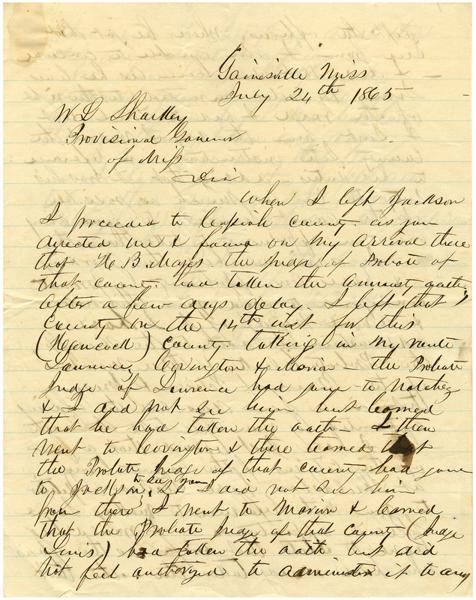 Gainesville Miss
July 24th 1865
W L Sharkey
Provisional Govenor
of Miss
Sir
When I left Jackson
I proceeded to Copiah county as you
directed me & found on my arrival there
that H. B. Mayes the judge of Probate of
that county had taken the amnesty oath
after a few days delay. I left that
county on the 14th inst for this
(Hancock) county taking in my route
Lawrence, Covington & Marion – the Probate
judge of Lawrence had gone to Natchez
& I did not see him but learned
that he had taken the oath – I then
went to Covington & there learned that
the Probate judge of that county had gone
to Jackson to see you & I did not see him
from there I went to Marion & learned
that the Probate judge of that county (judge
Lewis) had taken the oath but did
not feel authorized to administer it to any